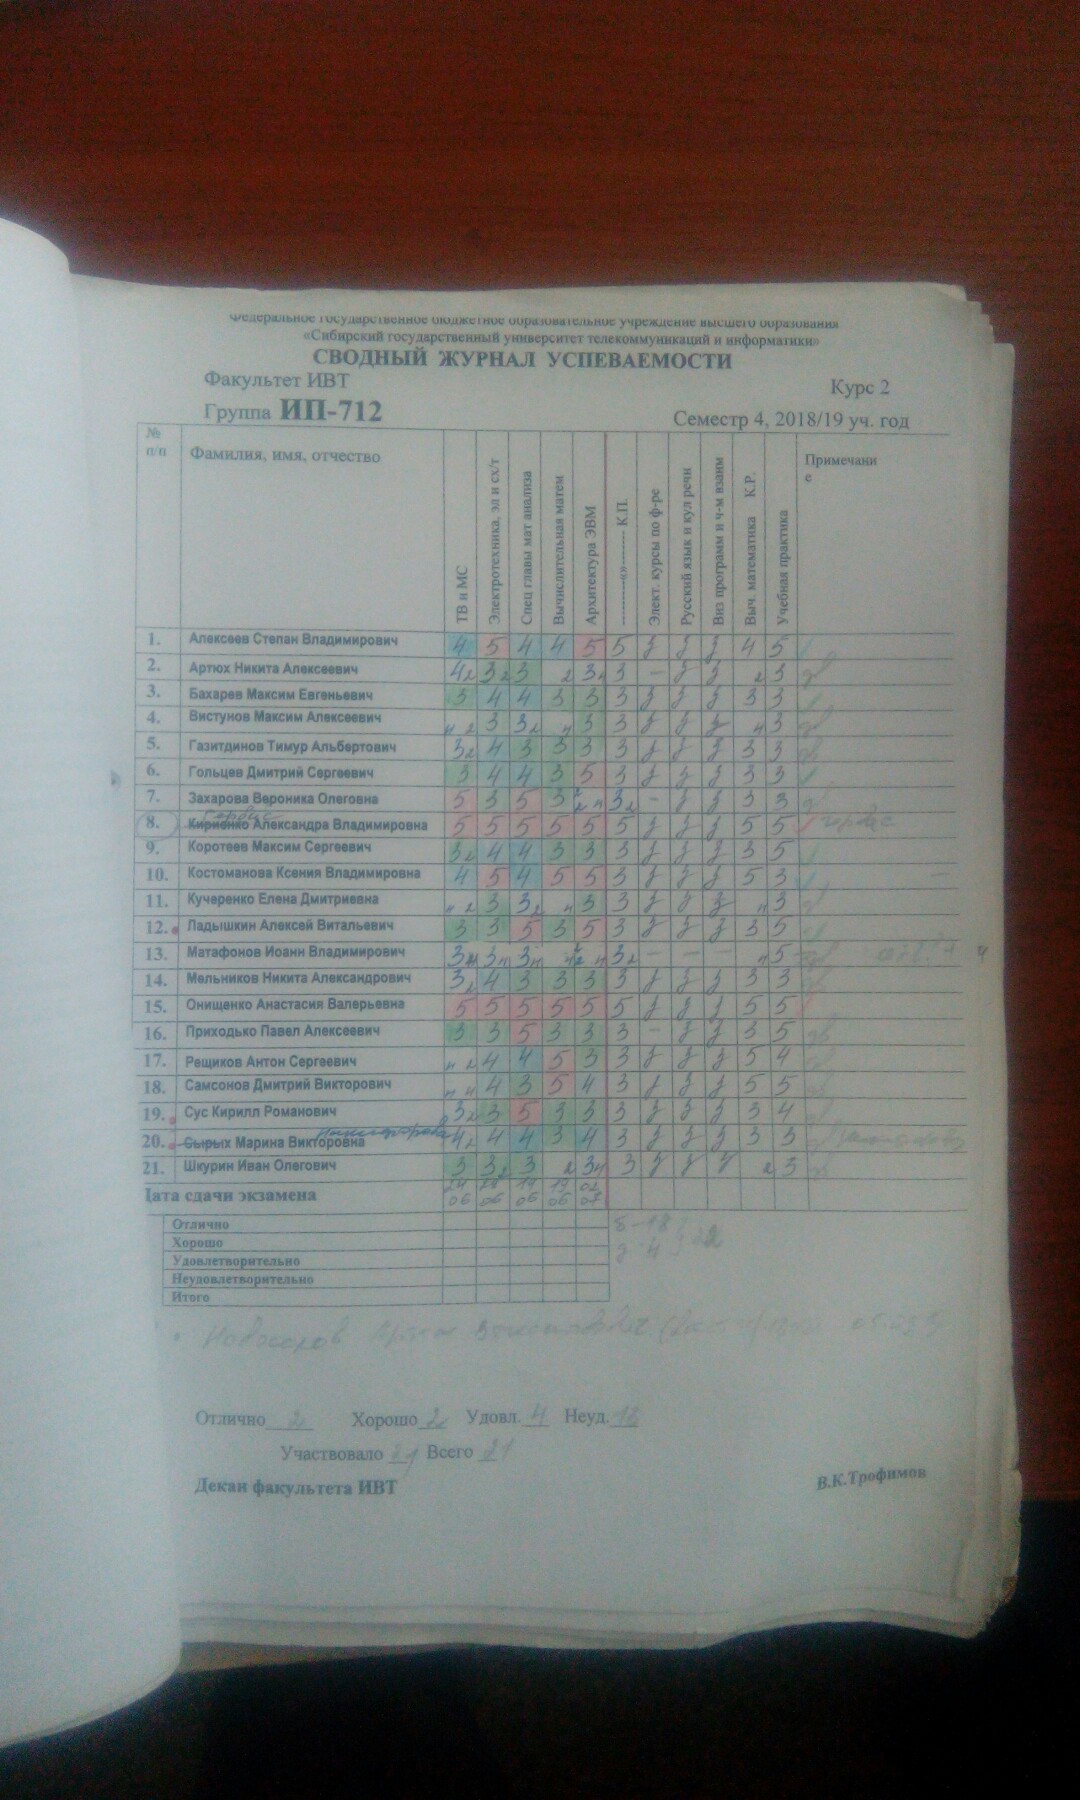 Федеральное государственное бюджетное образовательное учреждение высшего образования
«Сибирский государственный университет телекоммуникаций и информатики»
СВОДНЫЙ ЖУРНАЛ УСПЕВАЕМОСТИ
Факультет ИВТ Курс 2
Группа ИП-712 Семестр 4, 2018/19 уч. год
№ п/п Фамилия, имя, отчество ТВ и МС Электротехника, эл и сх/т Спец главы мат анализа Вычислительная матем Архитектура ЭВМ ----------«»-------- К.П. Элект. курсы по ф-ре Русский язык и кул речи Виз программ и ч-м взаим Выч. математика К.Р. Учебная практика Примечание
1. Алексеев Степан Владимирович 4 5 4 4 5 5 з з з 4 5
2. Артюх Никита Алексеевич 4 2 3 2 3 2 3 3 - з з 2 3
3. Бахарев Максим Евгеньевич 3 4 4 3 3 3 з з з 3 3
4. Вистунов Максим Алексеевич н 2 3 3 2 н 3 3 з з з н 3
5. Газитдинов Тимур Альбертович 3 2 4 3 3 3 3 з з з 3 3
6. Гольцев Дмитрий Сергеевич 3 4 4 3 5 3 з з з 3 3
7. Захарова Вероника Олеговна 5 3 5 3 2 н 3 2 - з з 3 3
8. Кириенко Александра Владимировна 5 5 5 5 5 5 з з з 5 5
9. Коротеев Максим Сергеевич 3 2 4 4 3 3 3 з з з 3 5
10. Костоманова Ксения Владимировна 4 5 4 5 5 3 з з з 5 3
11. Кучеренко Елена Дмитриевна н 2 3 3 2 н 3 3 з з з н 3
12. Ладышкин Алексей Витальевич 3 3 5 3 5 3 з з з 3 5
13. Матафонов Иоанн Владимирович 3 н 3 н 3 н н 2 н 3 2 - - - н 5
14. Мельников Никита Александрович 3 2 4 3 3 3 3 з з з 3 3
15. Онищенко Анастасия Валерьевна 5 5 5 5 5 5 з з з 5 5
16. Приходько Павел Алексеевич 3 3 5 3 3 3 - з з 3 5
17. Рещиков Антон Сергеевич н 2 4 4 5 3 3 з з з 5 4
18. Самсонов Дмитрий Викторович н н 4 3 5 4 3 з з з 5 5
19. Сус Кирилл Романович 3 2 3 5 3 3 3 з з з 3 4
20. Сырых Марина Викторовна 4 2 4 4 3 4 3 з з з 3 3
21. Шкурин Иван Олегович 3 3 2 3 2 3 н 3 з з з 2 3
Дата сдачи экзамена 24 06 28 06 19 06 19 06 02 07
Отлично
Хорошо
Удовлетворительно
Неудовлетворительно
Итого
Отлично 2 Хорошо 2 Удовл. 4 Неуд. 13
Участвовало 21 Всего 21
Декан факультета ИВТ В.К.Трофимов